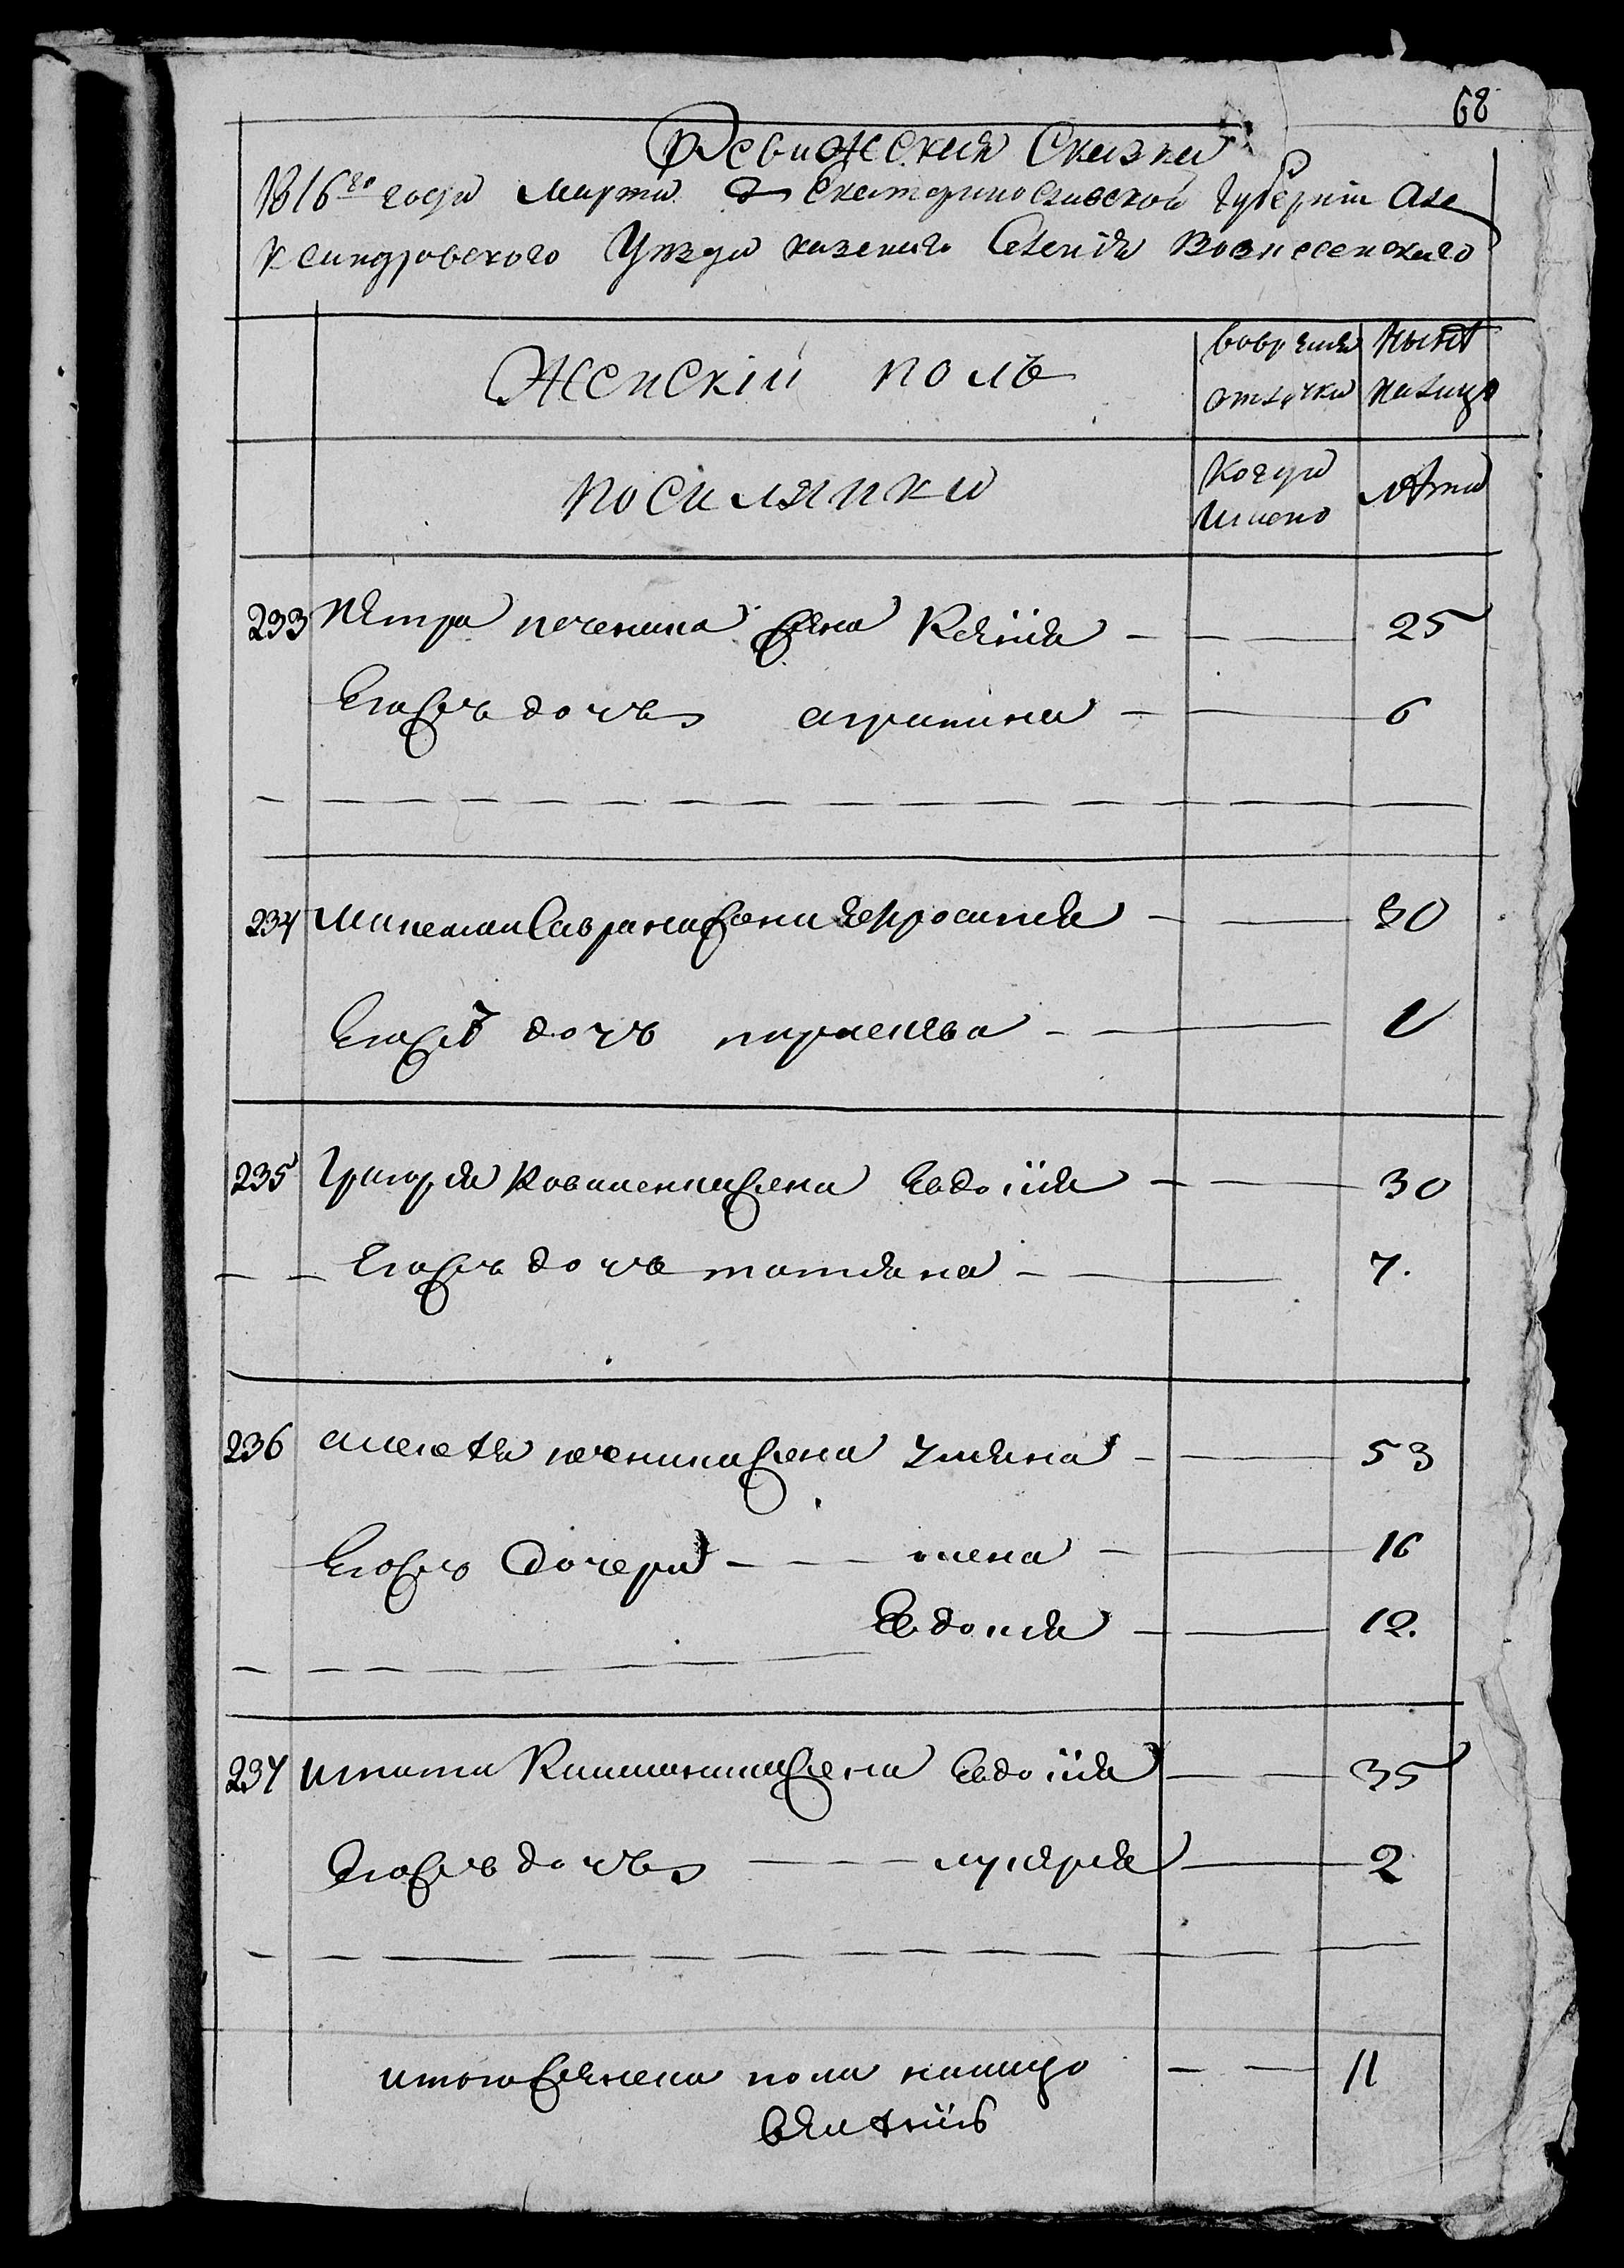 68
Ревижская Сказка
1816го года Марта Екатеринославской Губернии Але
ксандровского Уезда казенаго Селения Вознесенского
Женскiй полъ
вовремя отлучки
ныне налицо
посилянки
Когда
лета
233 Петра печенина жена Ксения — 25
Егожъ дочь агрипина — 6
234 Саврана жена — 30
Егожъ дочь — 1
235 Григория Коваленка жена Евдокия — 30
Егожъ дочь татияна — 7.
236 алексея жена улияна — 53
Егожъ дочери — олена — 16
Евдокия — 12.
237 игната жена Евдокия — 35
Егожъ дочь — лукерия — 2
итого женска пола налицо — 11